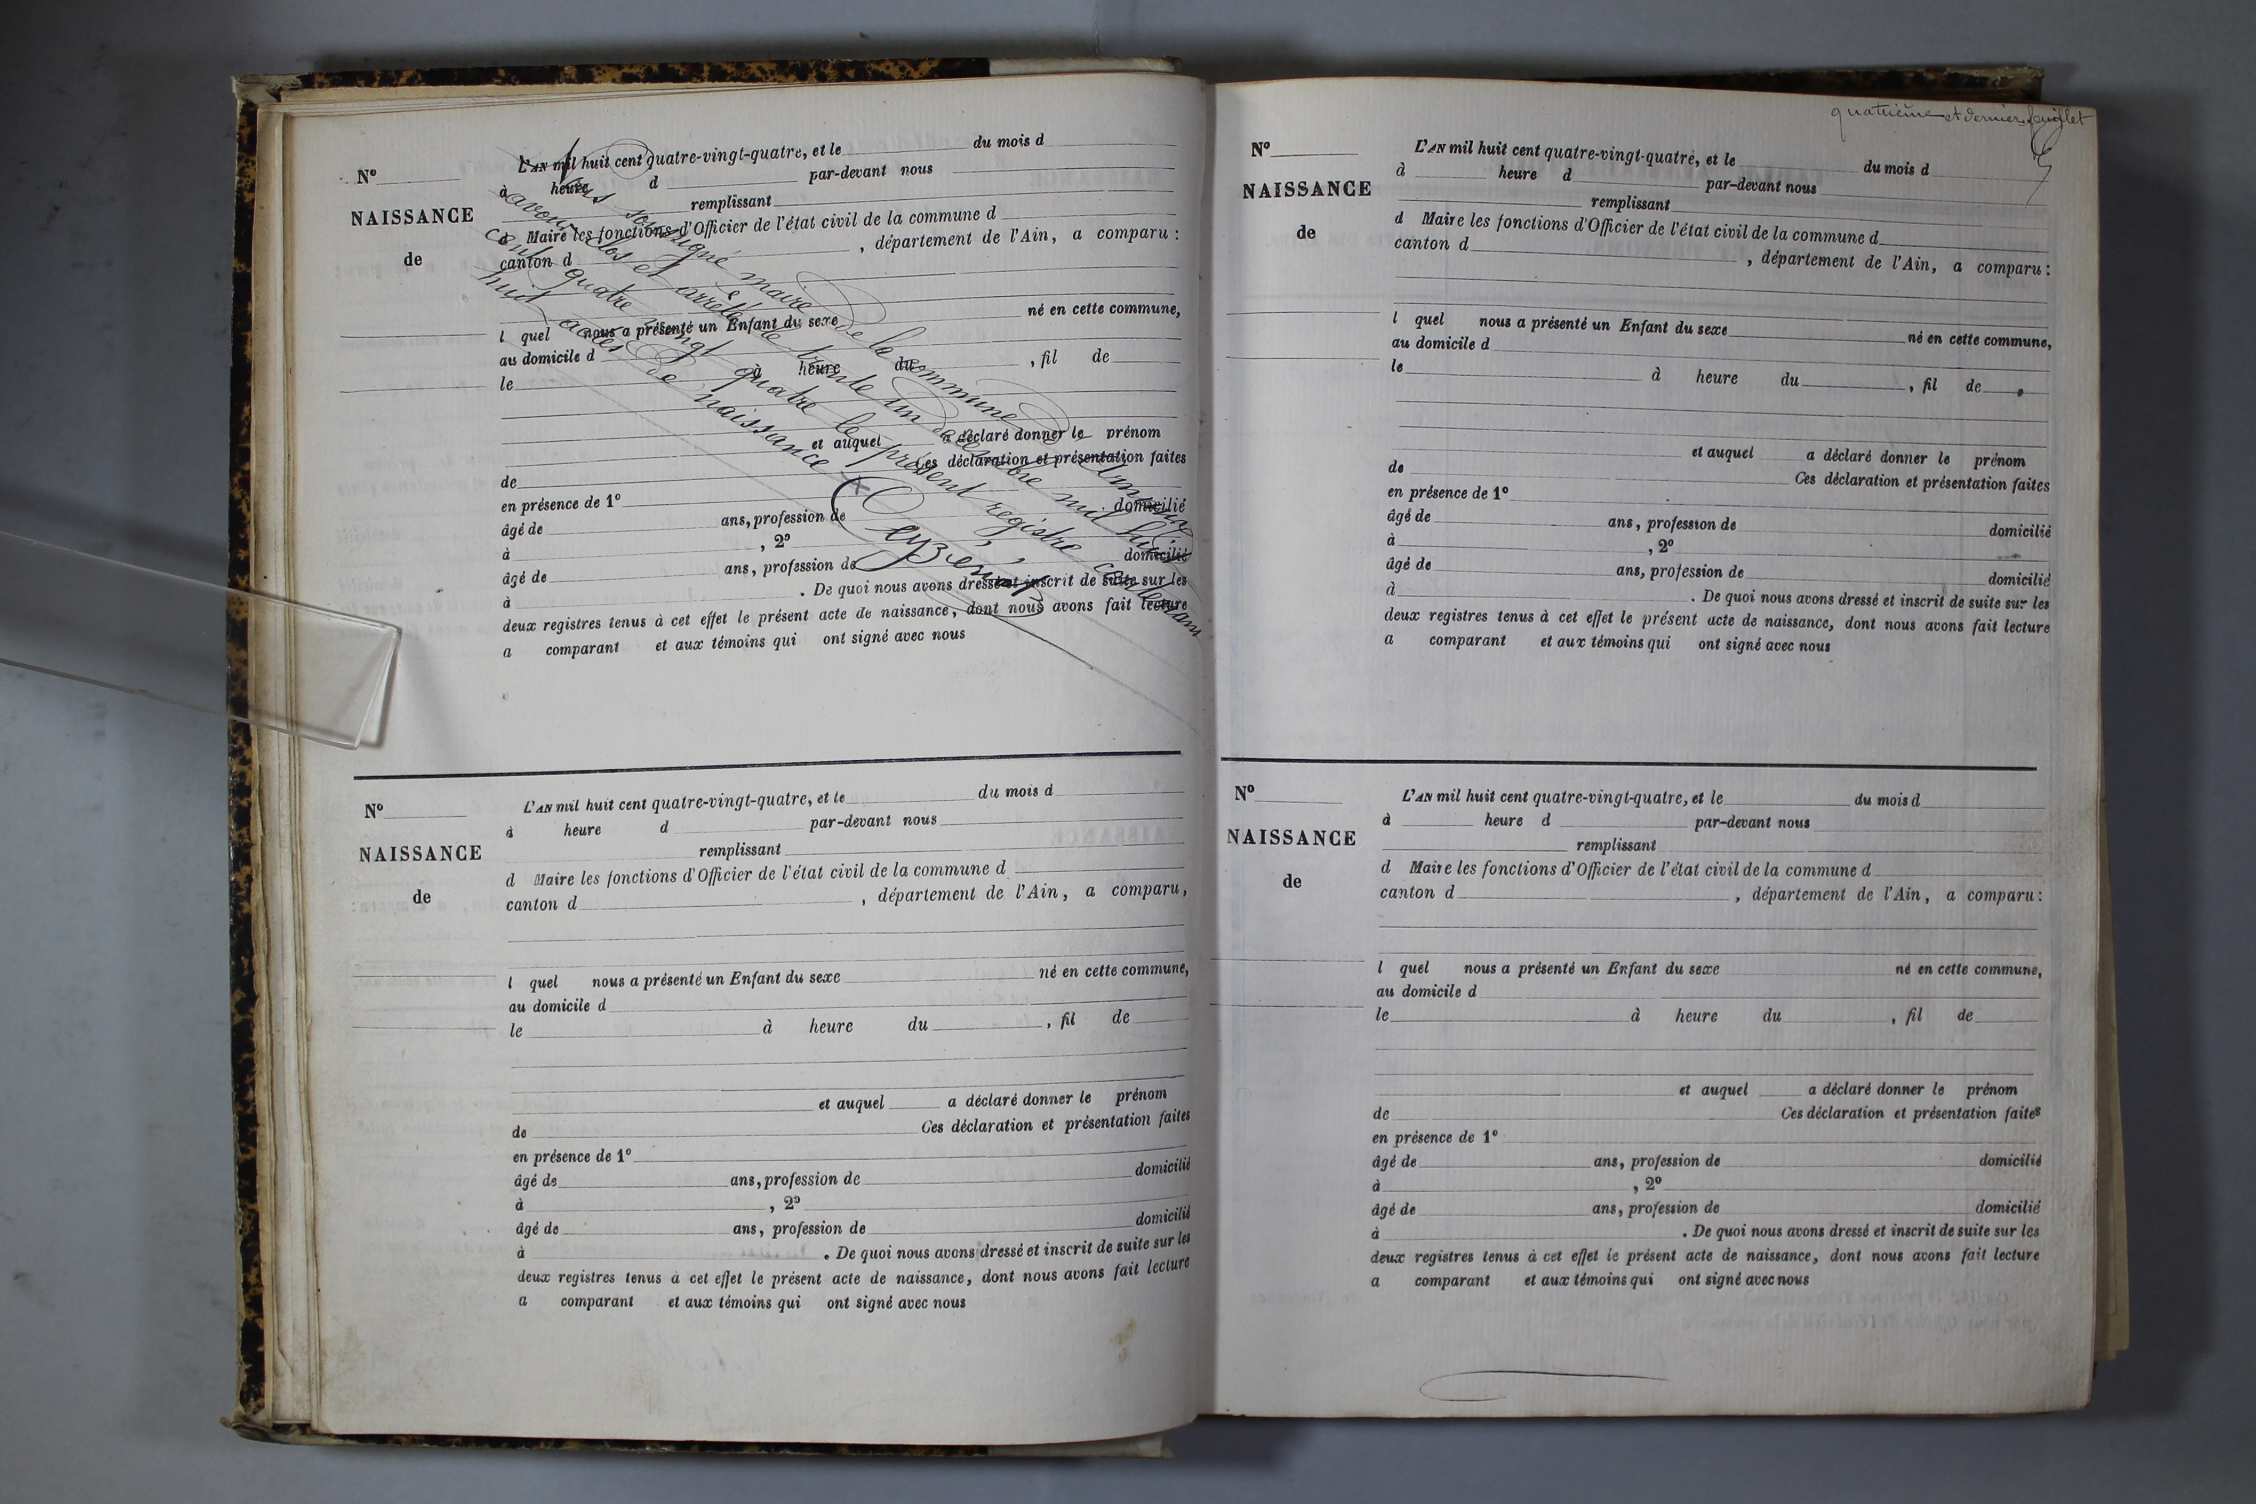 Nº
NAISSANCE
de
L'AN mil huit cent quatre-vingt-quatre, et le du mois d
à heure d par-devant nous
remplissant
d Maire les fonctions d'Officier de l'état civil de la commune d
canton d , département de l'Ain, a comparu :
l quel nous a présenté un Enfant du sexe né en cette commune,
au domicile d
le à heure du , fil de
et auquel a déclaré donner le prénom
de Ces déclaration et présentation faites
en présence de 1º
âgé de ans, profession de domicilié
à , 2º
âgé de ans, profession de domicilié
à . De quoi nous avons dressé et inscrit de suite sur les
deux registres tenus à cet effet le présent acte de naissance, dont nous avons fait lecture
a comparant et aux témoins qui ont signé avec nous
soussigné maire de la commune
avons clos et arrêté le trente un décembre mil huit
cent quatre vingt quatre le présent registre contenant
huit actes de naissance
Nº
NAISSANCE
de
L'AN mil huit cent quatre-vingt-quatre, et le du mois d
à heure d par-devant nous
remplissant
d Maire les fonctions d'Officier de l'état civil de la commune d
canton d , département de l'Ain, a comparu,
l quel nous a présenté un Enfant du sexe né en cette commune,
au domicile d
le à heure du , fil de
et auquel a déclaré donner le prénom
de Ces déclaration et présentation faites
en présence de 1º
âgé de ans, profession de domicilié
à , 2º
âgé de ans, profession de domicilié
à . De quoi nous avons dressé et inscrit de suite sur les
deux registres tenus à cet effet le présent acte de naissance, dont nous avons fait lecture
a comparant et aux témoins qui ont signé avec nous
quatrième et dernier feuillet
Nº
NAISSANCE
de
L'AN mil huit cent quatre-vingt-quatre, et le du mois d
à heure d par-devant nous
remplissant
d Maire les fonctions d'Officier de l'état civil de la commune d
canton d , département de l'Ain, a comparu :
l quel nous a présenté un Enfant du sexe né en cette commune,
au domicile d
le à heure du , fil de
et auquel a déclaré donner le prénom
de Ces déclaration et présentation faites
en présence de 1º
âgé de ans, profession de domicilié
à , 2º
âgé de ans, profession de domicilié
à . De quoi nous avons dressé et inscrit de suite sur les
deux registres tenus à cet effet le présent acte de naissance, dont nous avons fait lecture
a comparant et aux témoins qui ont signé avec nous
Nº
NAISSANCE
de
L'AN mil huit cent quatre-vingt-quatre, et le du mois d
à heure d par-devant nous
remplissant
d Maire les fonctions d'Officier de l'état civil de la commune d
canton d , département de l'Ain, a comparu :
l quel nous a présenté un Enfant du sexe né en cette commune,
au domicile d
le à heure du , fil de
et auquel a déclaré donner le prénom
de Ces déclaration et présentation faites
en présence de 1º
âgé de ans, profession de domicilié
à , 2º
âgé de ans, profession de domicilié
à . De quoi nous avons dressé et inscrit de suite sur les
deux registres tenus à cet effet le présent acte de naissance, dont nous avons fait lecture
a comparant et aux témoins qui ont signé avec nous